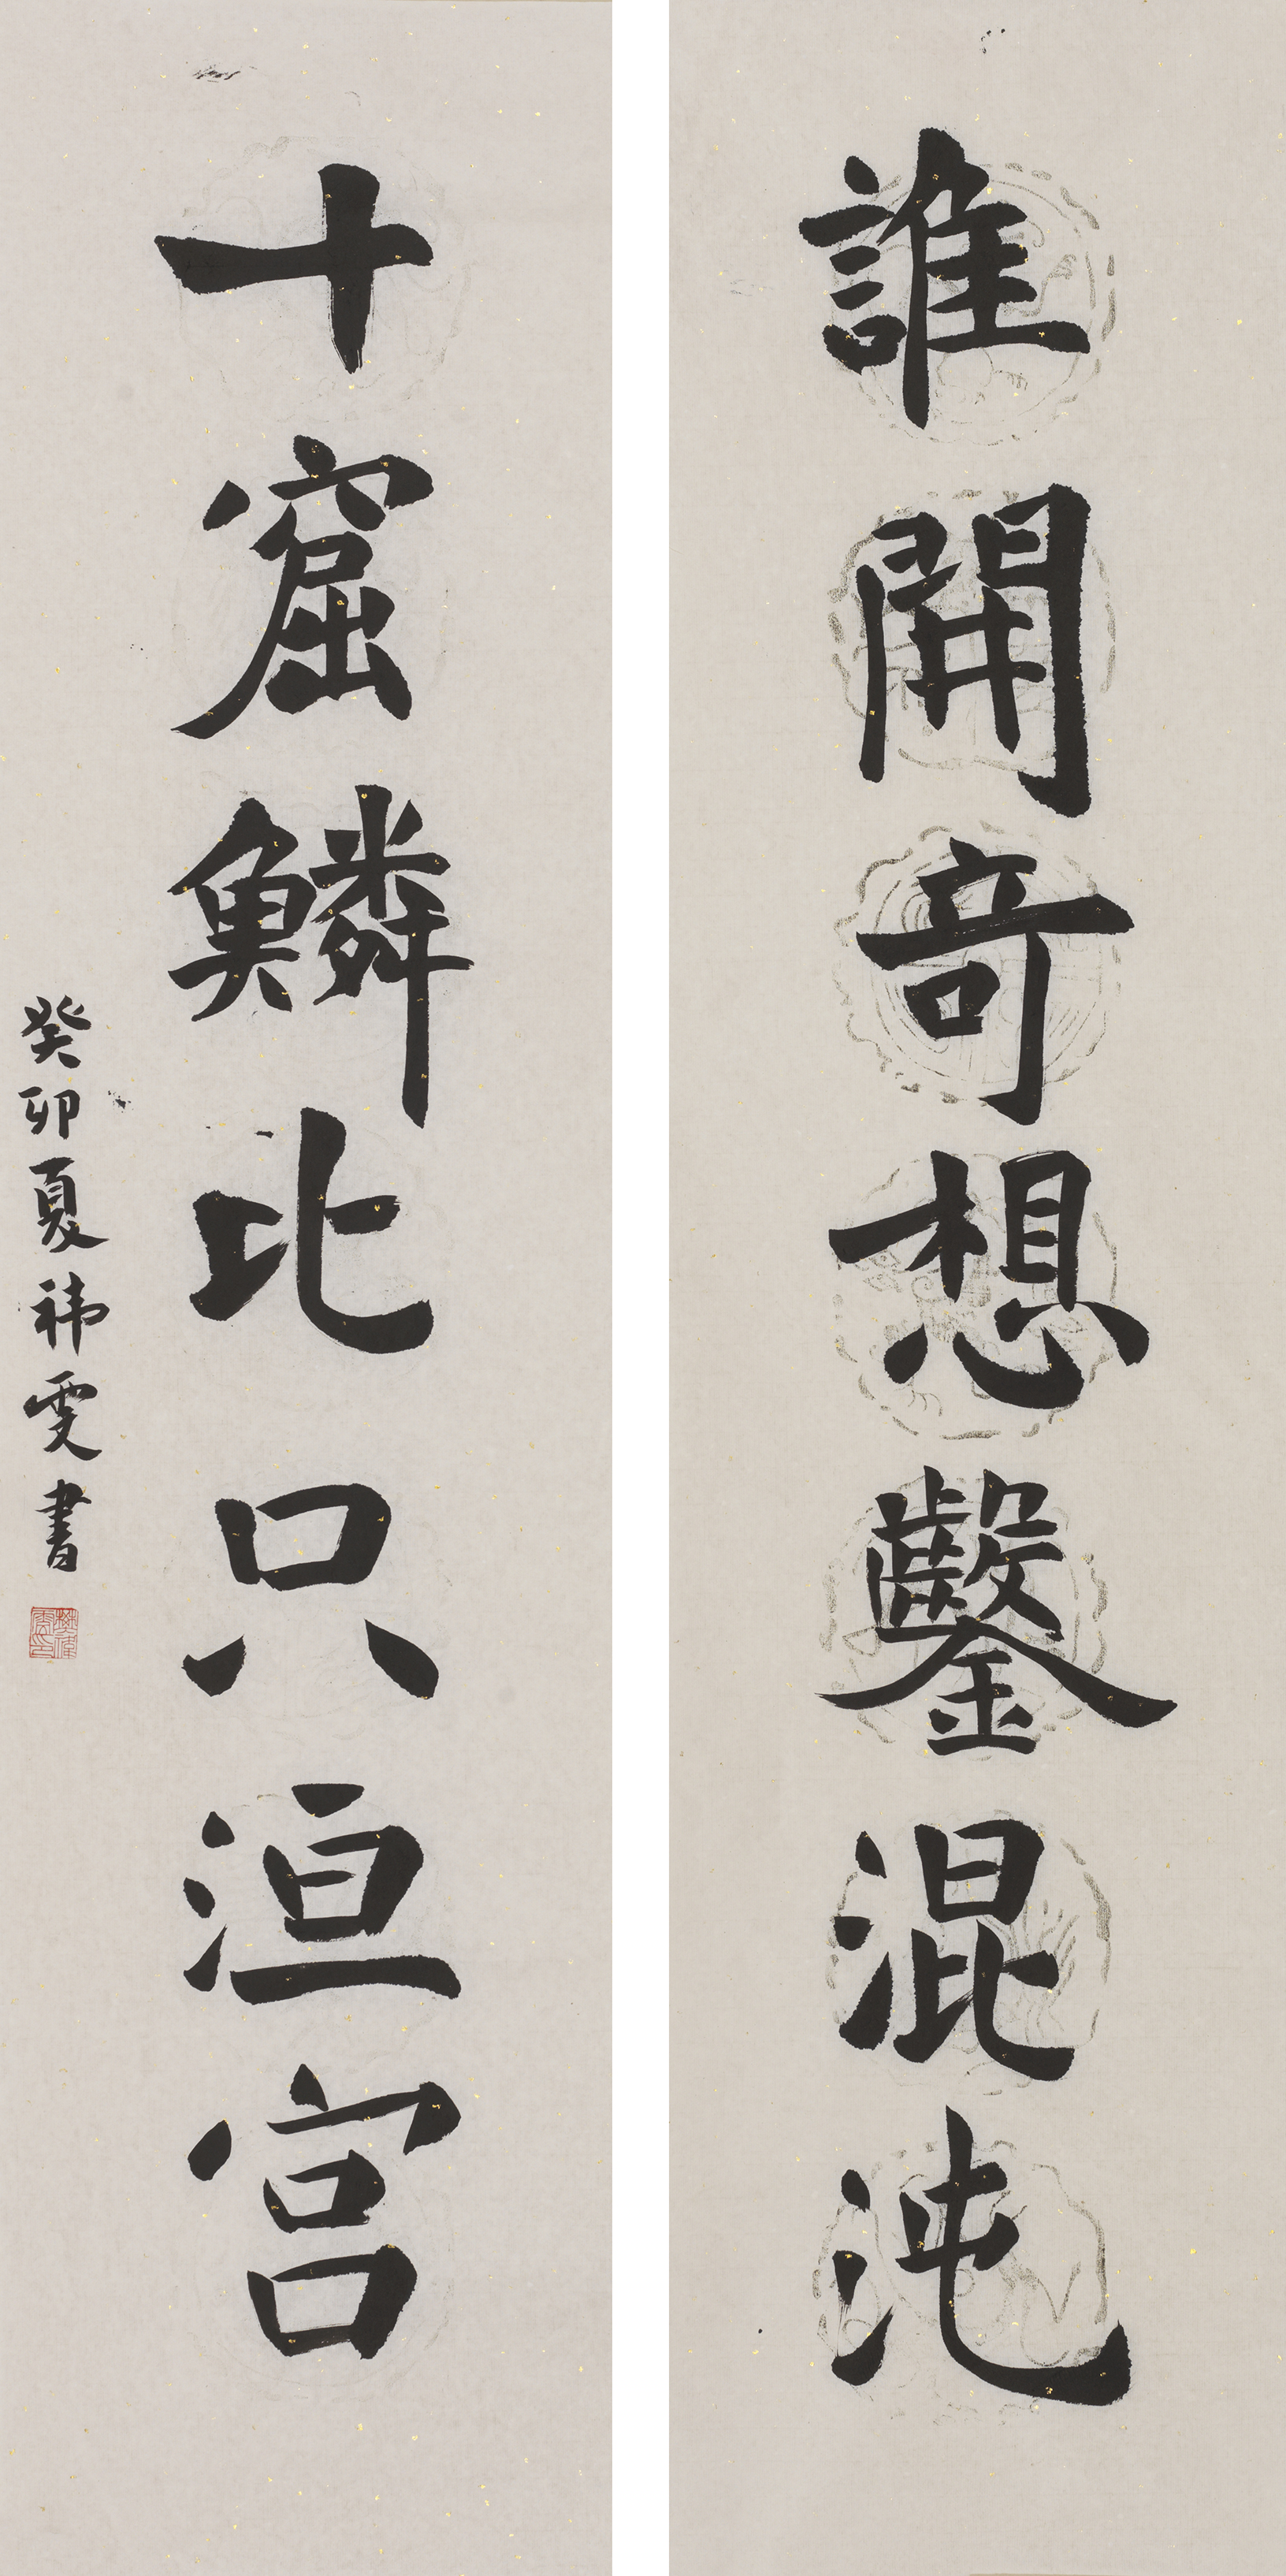 誰開奇想鑿混沌
十窟鱗比只洹宮
癸卯夏祎雯書